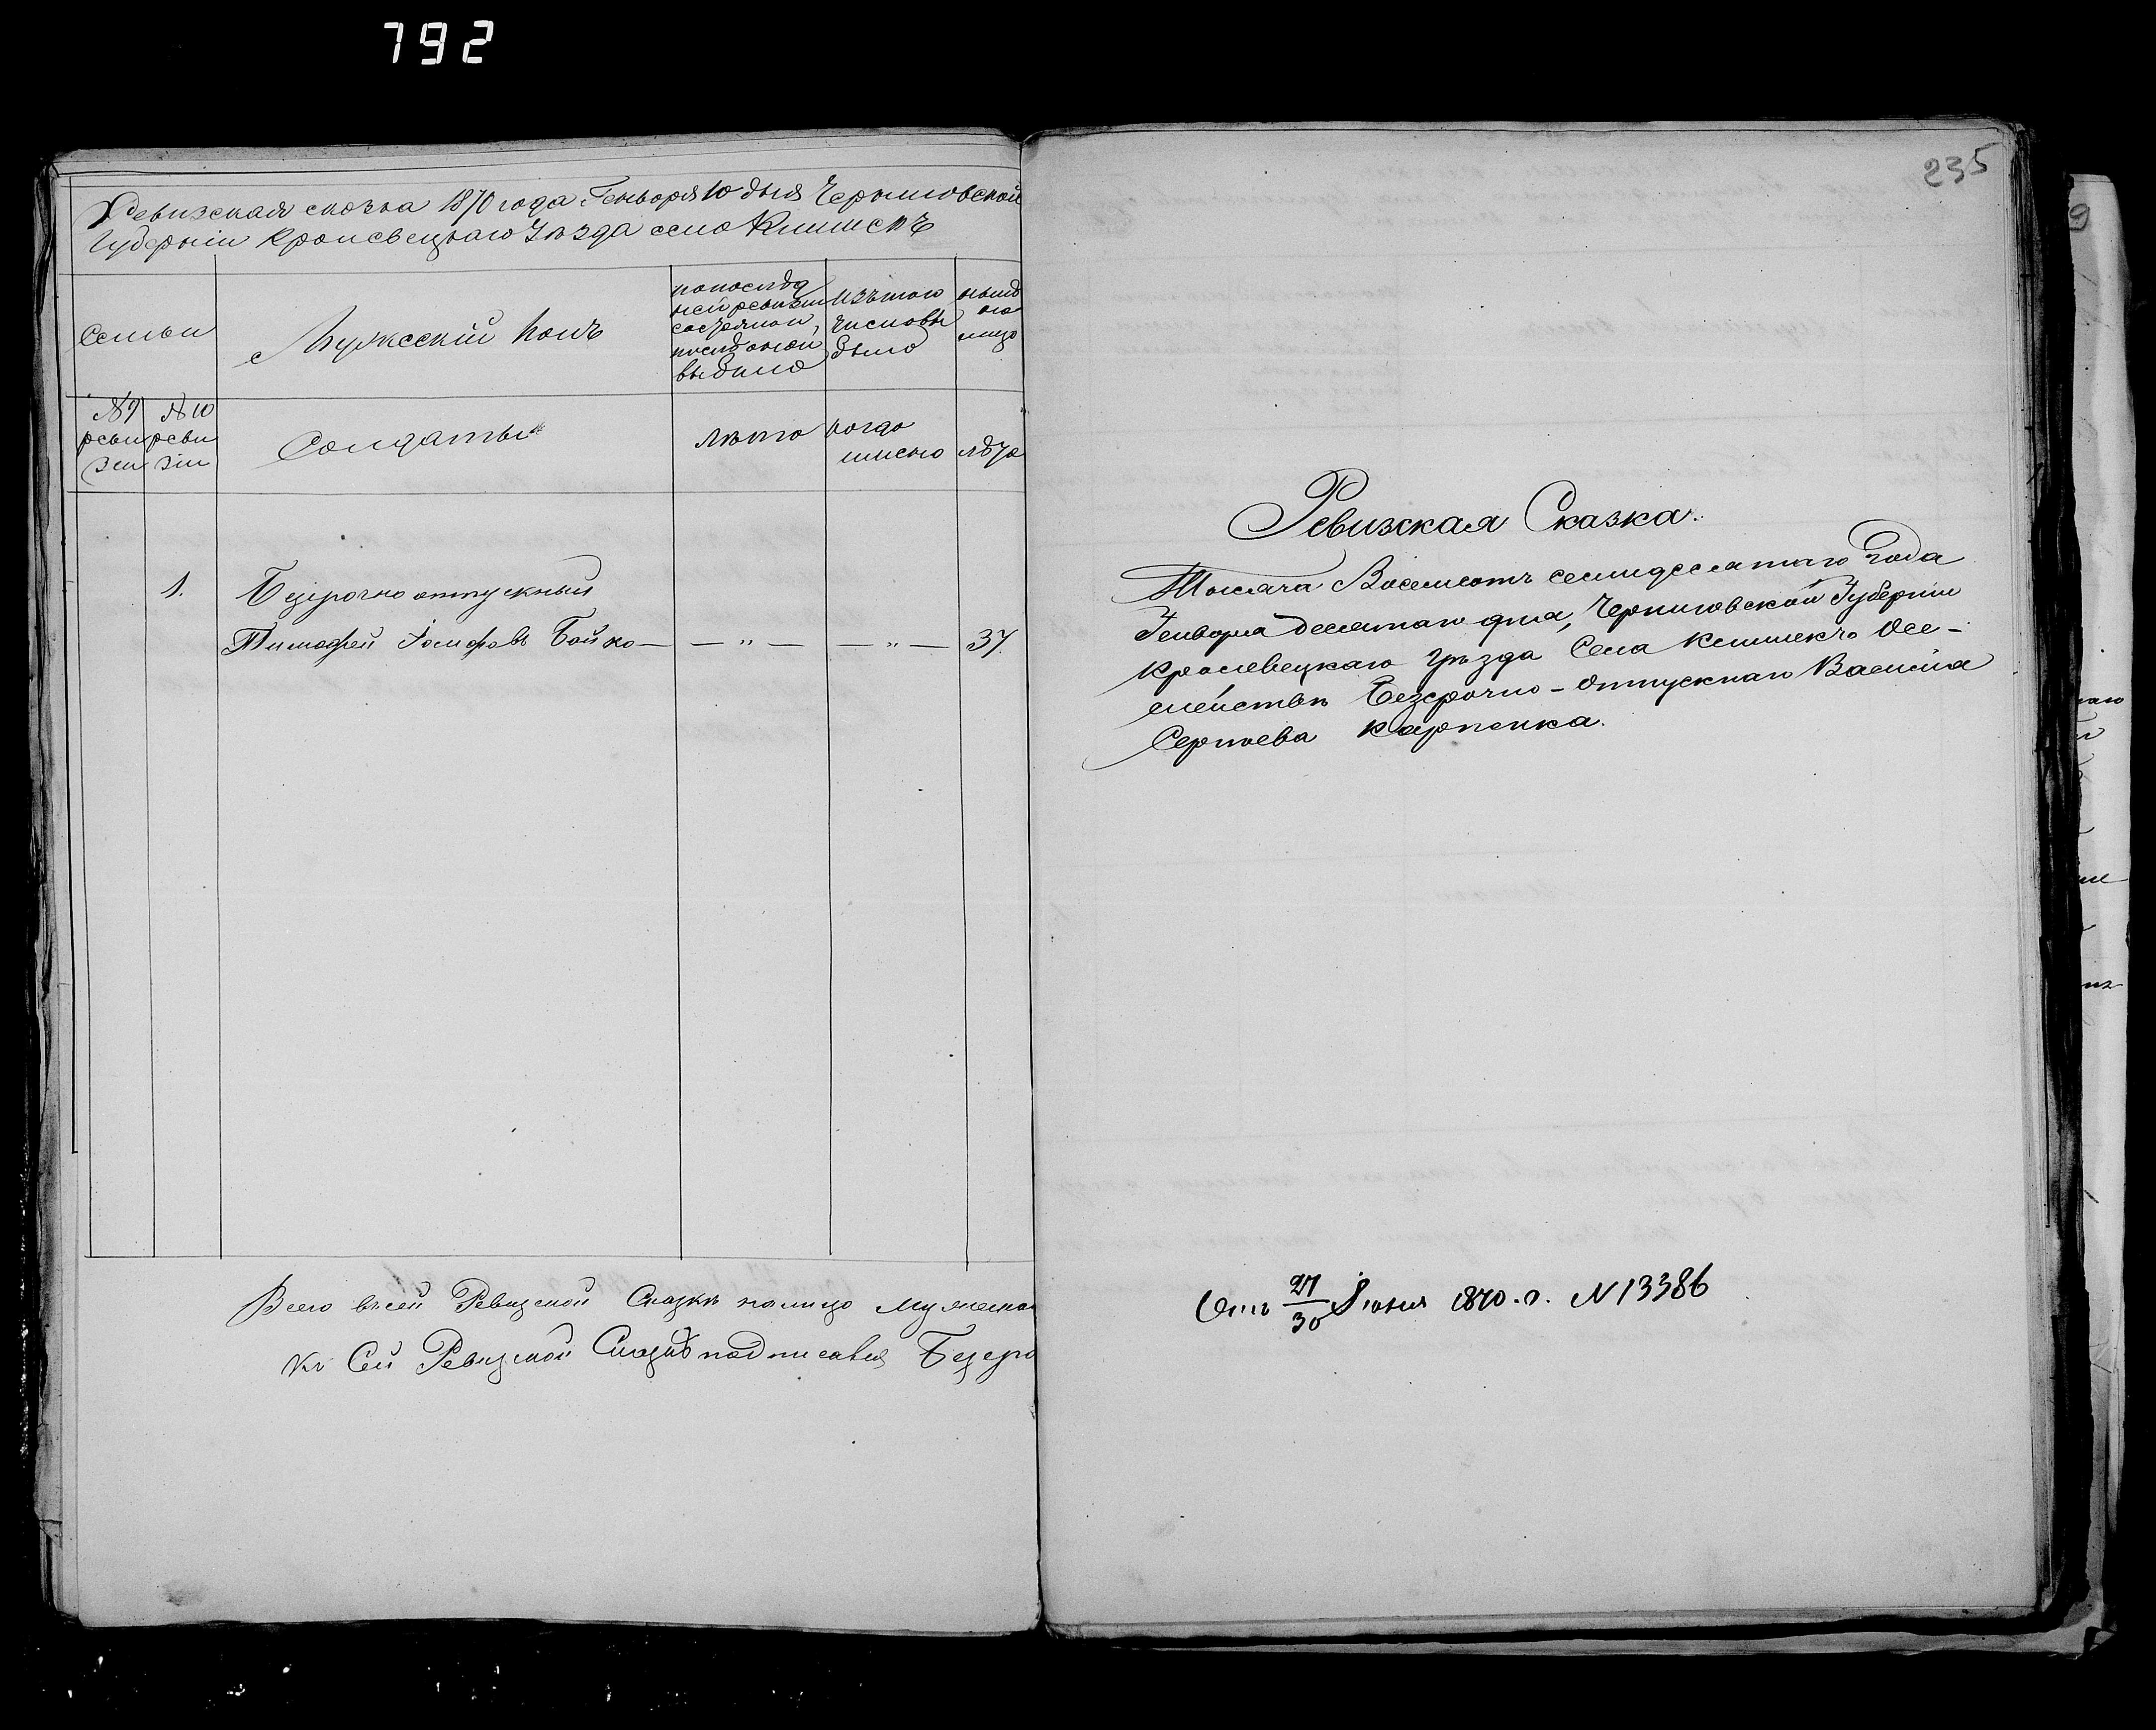 792
Ревизская сказка 1870 года Генваря 10 дня Черниговской
Губерніи Кролевецкаго Уѣзда село Клишекъ
Семьи
Мужескій полъ
попослѣд
ней ревизіи
состояли,
послѣ оной
выбыло
Изътого
числовы
было
нынѣ
на
лицо
№9
ревизіи
№10
ревизіи
Солдаты
Лѣта
когда
лѣта
1.
Безсрочно отпускный
Тимофей Іосифовъ Бойко — — „ — — „ — 37.
Всего въсей Ревизской Сказкѣ налицо мужеска
Къ Сей Ревизской Сказкѣ подписався Безсро
235
Ревизская Сказка.
Тысяча Восемсотъ семидесятаго года
Генваря десятаго дня, Черниговской Губерніи
Кролевецкаго Уѣзда Села Клишекъ Осе-
Безсрочно-Отпускнаго Василія
Сергѣева Карпенка.
Отъ 27/30 Іюня 1870. г. N 13386